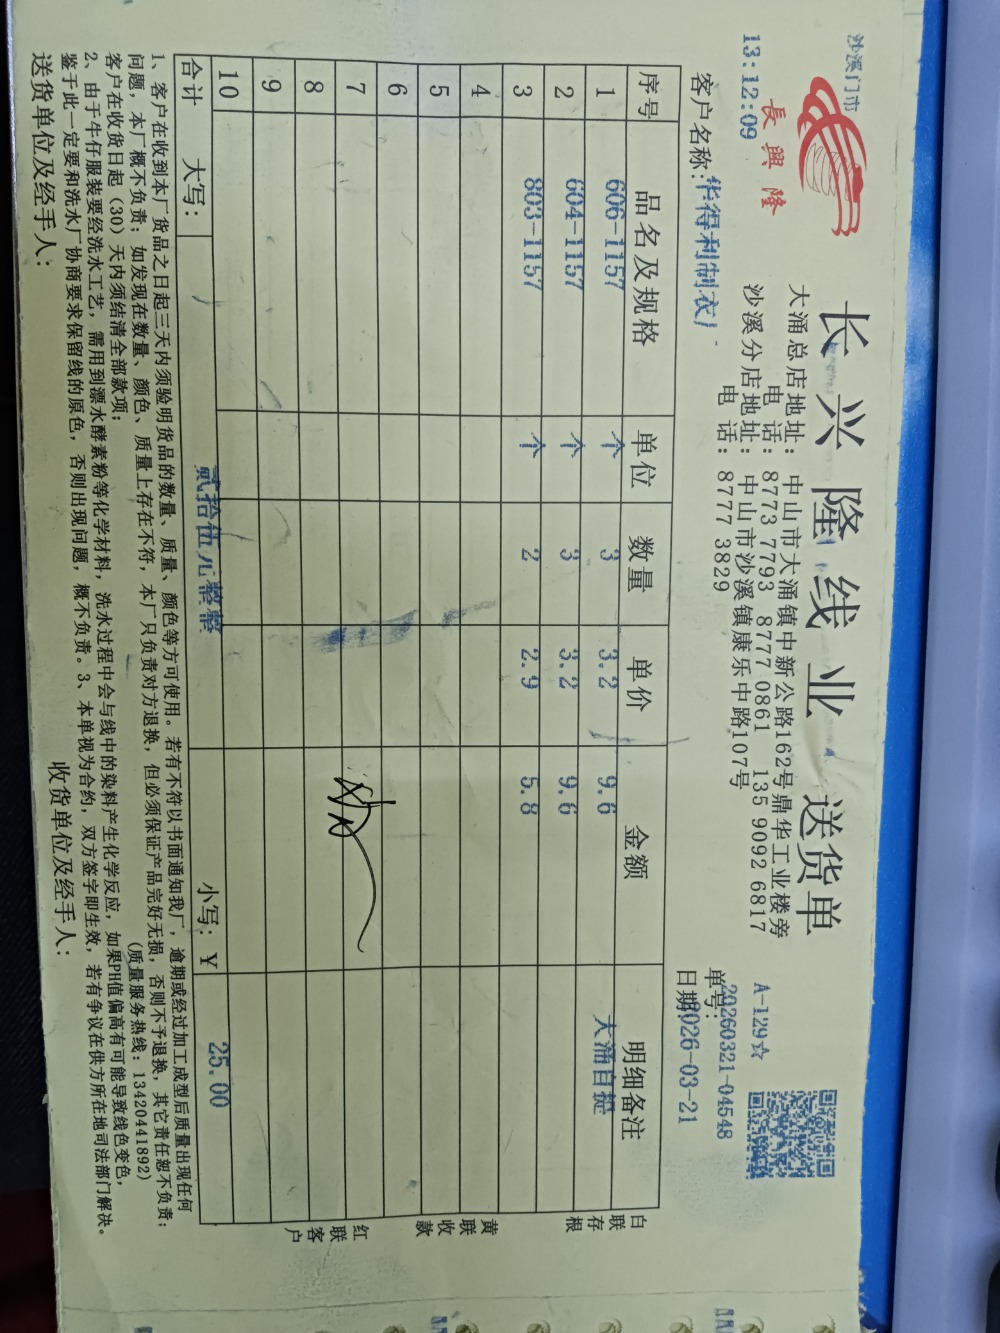 沙溪门市
13:12:09
長興隆
长兴隆线业 送货单
大涌总店地址：中山市大涌镇中新公路162号鼎华工业楼旁
电 话：8773 7793 8777 0861 135 9092 6817
沙溪分店地址：中山市沙溪镇康乐中路107号
电 话：8777 3829
A-129☆
单号：20260321-04548
客户名称：华得利制衣厂
日期2026-03-21
序号 品名及规格 单位 数量 单价 金额 明细备注
1 606-1157 个 3 3.2 9.6 大涌自提
2 604-1157 个 3 3.2 9.6
3 803-1157 个 2 2.9 5.8
4
5
6
7
8
9
10
合计 大写： 贰拾伍元整整 小写：￥ 25.00
白联存根
黄联收款
红联客户
1、客户在收到本厂货品之日起三天内须验明货品的数量、质量、颜色等方可使用。若有不符以书面通知我厂，逾期或经过加工成型后质量出现任何
问题，本厂概不负责；如发现在数量、颜色、质量上存在不符，本厂只负责对方退换，但必须保证产品完好无损，否则不予退换，其它责任恕不负责；
客户在收货日起（30）天内须结清全部款项； （质量服务热线：13420441892）
2、由于牛仔服装要经洗水工艺，需用到漂水酵素粉等化学材料，洗水过程中会与线中的染料产生化学反应，如果PH值偏高有可能导致线色变色，
鉴于此一定要和洗水厂协商要求保留线的原色，否则出现问题，概不负责。3、本单视为合约，双方签字即生效，若有争议在供方所在地司法部门解决。
送货单位及经手人： 收货单位及经手人：